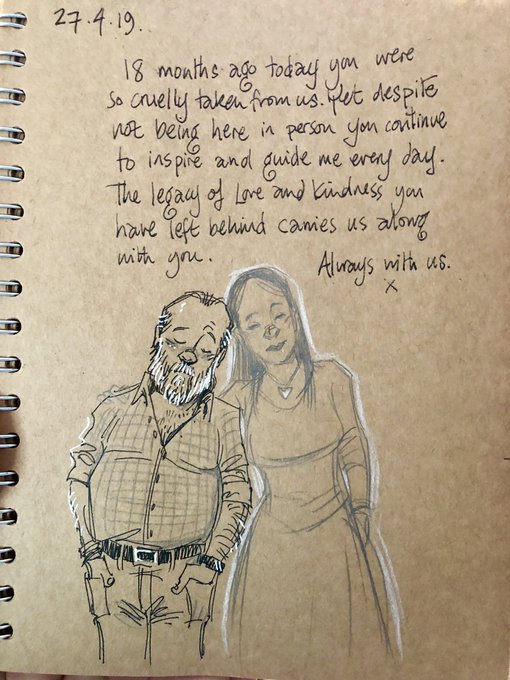 27.4.19.
18 months ago today you were
so cruelly taken from us. Yet despite
not being here in person you continue
to inspire and guide me every day.
The legacy of Love and Kindness you
have left behind carries us along
with you.
Always with us.
x